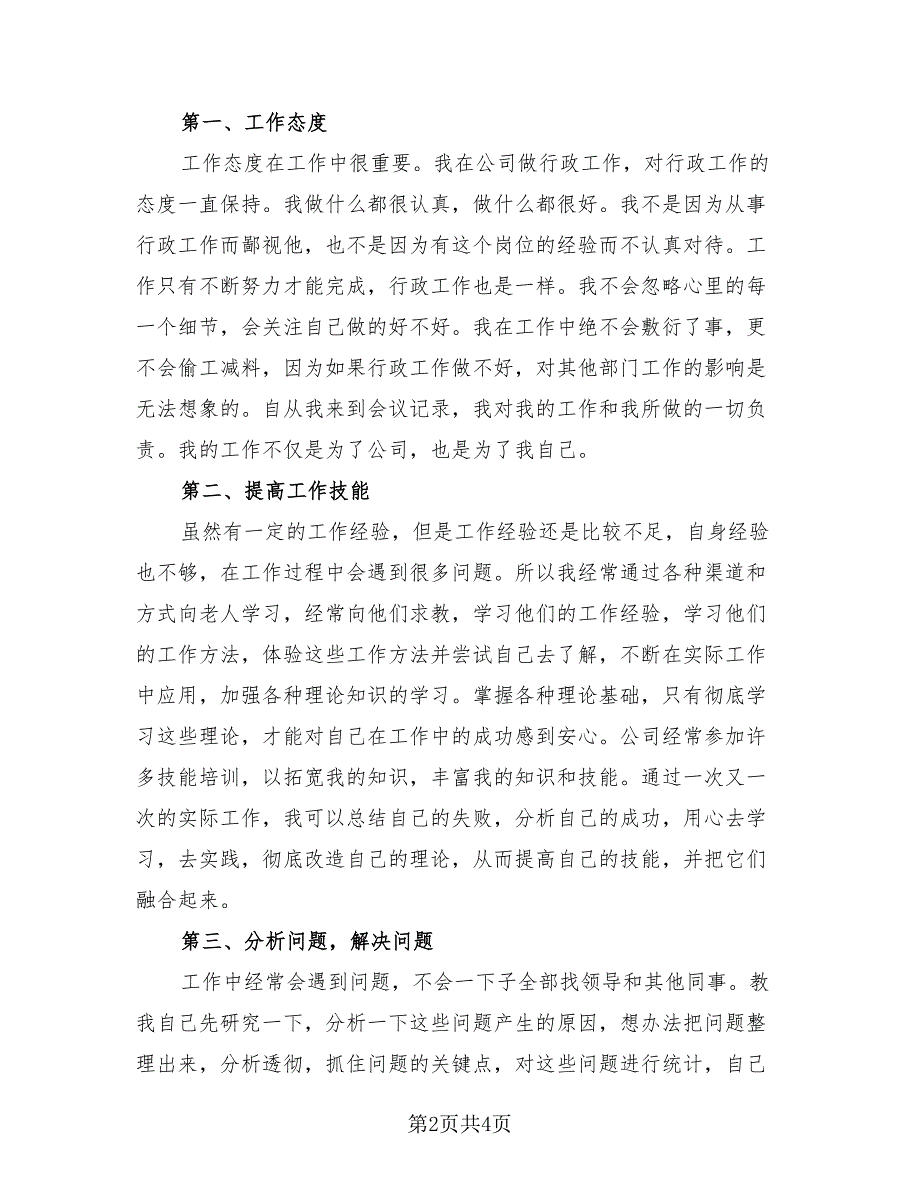 第一、工作态度
工作态度在工作中很重要。我在公司做行政工作，对行政工作的
态度一直保持。我做什么都很认真，做什么都很好。我不是因为从事
行政工作而鄙视他，也不是因为有这个岗位的经验而不认真对待。工
作只有不断努力才能完成，行政工作也是一样。我不会忽略心里的每
一个细节，会关注自己做的好不好。我在工作中绝不会敷衍了事，更
不会偷工减料，因为如果行政工作做不好，对其他部门工作的影响是
无法想象的。自从我来到会议记录，我对我的工作和我所做的一切负
责。我的工作不仅是为了公司，也是为了我自己。
第二、提高工作技能
虽然有一定的工作经验，但是工作经验还是比较不足，自身经验
也不够，在工作过程中会遇到很多问题。所以我经常通过各种渠道和
方式向老人学习，经常向他们求教，学习他们的工作经验，学习他们
的工作方法，体验这些工作方法并尝试自己去了解，不断在实际工作
中应用，加强各种理论知识的学习。掌握各种理论基础，只有彻底学
习这些理论，才能对自己在工作中的成功感到安心。公司经常参加许
多技能培训，以拓宽我的知识，丰富我的知识和技能。通过一次又一
次的实际工作，我可以总结自己的失败，分析自己的成功，用心去学
习，去实践，彻底改造自己的理论，从而提高自己的技能，并把它们
融合起来。
第三、分析问题，解决问题
工作中经常会遇到问题，不会一下子全部找领导和其他同事。教
我自己先研究一下，分析一下这些问题产生的原因，想办法把问题整
理出来，分析透彻，抓住问题的关键点，对这些问题进行统计，自己
第2页共4页